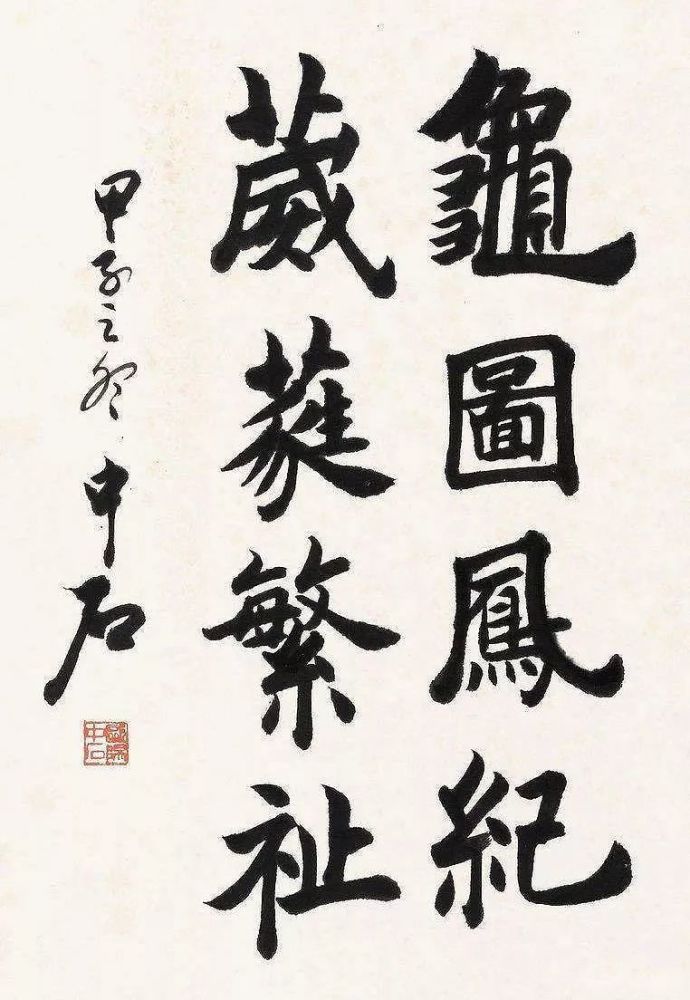 龜圖鳳紀
葳蕤繁祉
甲子之冬 中石
歐陽中石